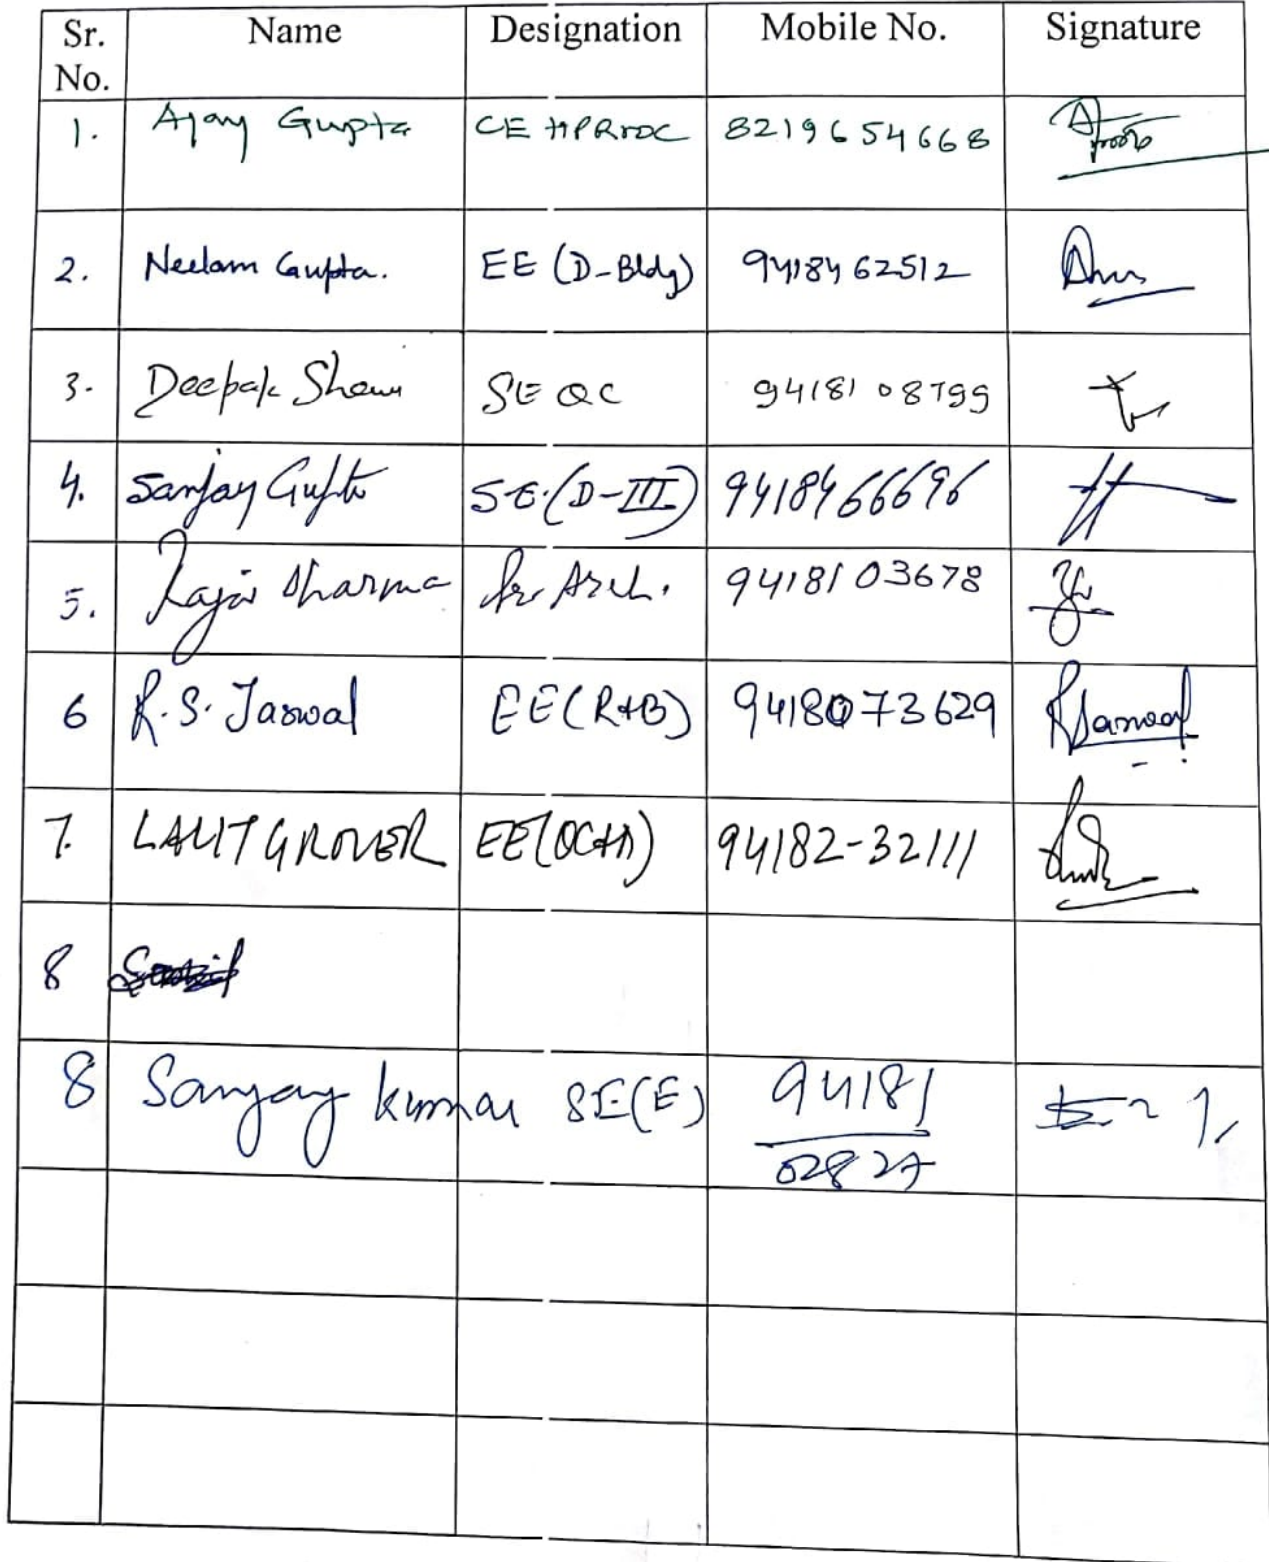 Sr. No. Name Designation Mobile No. Signature
1. Ajay Gupta CE HPRIDC 8219654668
2. Neelam Gupta. EE (D-Bldg) 9418462512
3. Deepak SE QC 94181 08799
4. Sanjay Gupta SE.(D-III) 9418466696
5. Rajiv Sharma Sr. Arch. 9418103678
6 R.S. Jaswal EE(R+B) 9418073629 RSJaswal
7. LALIT GROVER EE 94182-32111
8
8 Sanjay kumar SE(E) 94181
02827